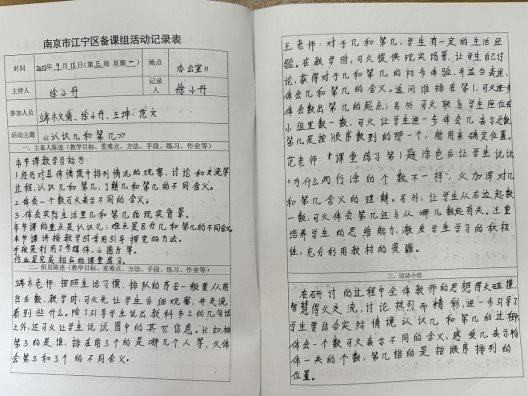 南京市江宁区备课组活动记录表
时间 2025年9月15日(第三周 星期一) 地点 办公室
主持人 徐小升 记录人 徐小升
参加人员 端木文倩、徐小升、王坤、范文
活动主题 《认识几和第几》
一、主备人陈述(教学目标、重难点、方法、手段、练习、作业等)
本节课教学目标为:
1.经历对具体情境中排列情况的观察、讨论和交流等
过程,认识几和第几,了解几和第几的不同含义。
2.体会一个数可以表示不同的含义。
3.体会实际生活里几和第几的现实背景。
本节课的重点是认识几;难点是区分几和第几的不同含义。
本节课讲授教学时采用引导探究的方法。
手段是利用了多媒体、小图片等。
作业是完成相应的课堂练习。
二、组员陈述(教学目标、重难点、方法、手段、练习、作业等)
端木老师:按照生活习惯,排队的序号一般要从前
往后数,教学时,可以先让学生自由观察,并交流
看到些什么。除了引导学生说出教科书上的几句话
之外,还可以让学生说说图中的其它信息。比如:排
第3的是谁,排在前3个的是哪几个人等,以体
会第3和3个的不同含义。
王老师:对于几和第几,学生有一定的生活经
验。在教学时,可以提供现实场景,让学生自己讨
论,获得对于几和第几的初步体验,并适当表述,
体会几和第几的含义。追问谁排在第1,可以进一步
体会数出第几的起点;另外可以联系学生座位在
小组里数一数,可以让学生进一步体会几表示总数
第几是按顺序数到的那一个,能用来确定位置。
范老师:"课堂练习第1题涂色后让学生说说
"为什么两行涂的个数不一样",以加深对几
和第几含义的理解。另外,让学生从右边起数
一数,可以体会第几还与从哪儿数起有关。注重
培养学生的思维能力,激发学生学习的积极
性,充分利用教材的资源。
三、活动小结
在研讨的过程中全体教师的思想得以碰撞,
智慧得以交流,讨论热烈而精彩,进一步引导了
学生要结合实际情境认识几和第几的过程
体会一个数可以表示不同的含义,感受几表示物
体一共的个数,第几指的是按顺序排列的
位置。